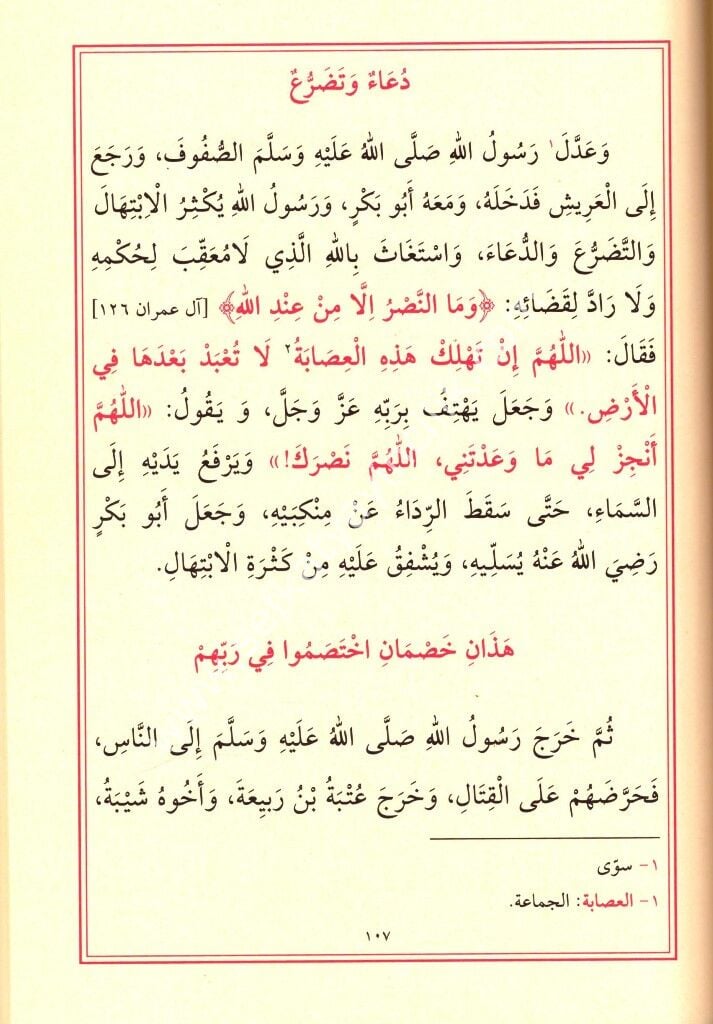 دُعَاءٌ وَتَضَرُّعٌ
وَعَدَّلَ١ رَسُولُ اللهِ صَلَّى اللهُ عَلَيْهِ وَسَلَّمَ الصُّفُوفَ، وَرَجَعَ
إِلَى الْعَرِيشِ فَدَخَلَهُ، وَمَعَهُ أَبُو بَكْرٍ، وَرَسُولُ اللهِ يُكْثِرُ الْاِبْتِهَالَ
وَالتَّضَرُّعَ وَالدُّعَاءَ، وَاسْتَغَاثَ بِاللهِ الَّذِي لَامُعَقِّبَ لِحُكْمِهِ
وَلَا رَادَّ لِقَضَائِهِ: ﴿وَمَا النَّصْرُ اِلَّا مِنْ عِنْدِ اللهِ﴾ [آل عمران ١٢٦]
فَقَالَ: «اللّٰهُمَّ إِنْ تَهْلِكْ هَذِهِ الْعِصَابَةُ٢ لَا تُعْبَدْ بَعْدَهَا فِي
الْأَرْضِ.» وَجَعَلَ يَهْتِفُ بِرَبِّهِ عَزَّ وَجَلَّ، وَ يَقُولُ: «اللّٰهُمَّ
أَنْجِزْ لِي مَا وَعَدْتَنِي، اللّٰهُمَّ نَصْرَكَ!» وَيَرْفَعُ يَدَيْهِ إِلَى
السَّمَاءِ، حَتَّى سَقَطَ الرِّدَاءُ عَنْ مِنْكِبَيْهِ، وَجَعَلَ أَبُو بَكْرٍ
رَضِيَ اللهُ عَنْهُ يُسَلِّيهِ، وَيُشْفِقُ عَلَيْهِ مِنْ كَثْرَةِ الْابْتِهَالِ.
هَذَانِ خَصْمَانِ اخْتَصَمُوا فِي رَبِّهِمْ
ثُمَّ خَرَجَ رَسُولُ اللهِ صَلَّى اللهُ عَلَيْهِ وَسَلَّمَ إِلَى النَّاسِ،
فَحَرَّضَهُمْ عَلَى الْقِتَالِ، وَخَرَجَ عُتْبَةُ بْنُ رَبِيعَةَ، وَأَخُوهُ شَيْبَةُ،
١- سوّى
١- العصابة: الجماعة.
١٠٧